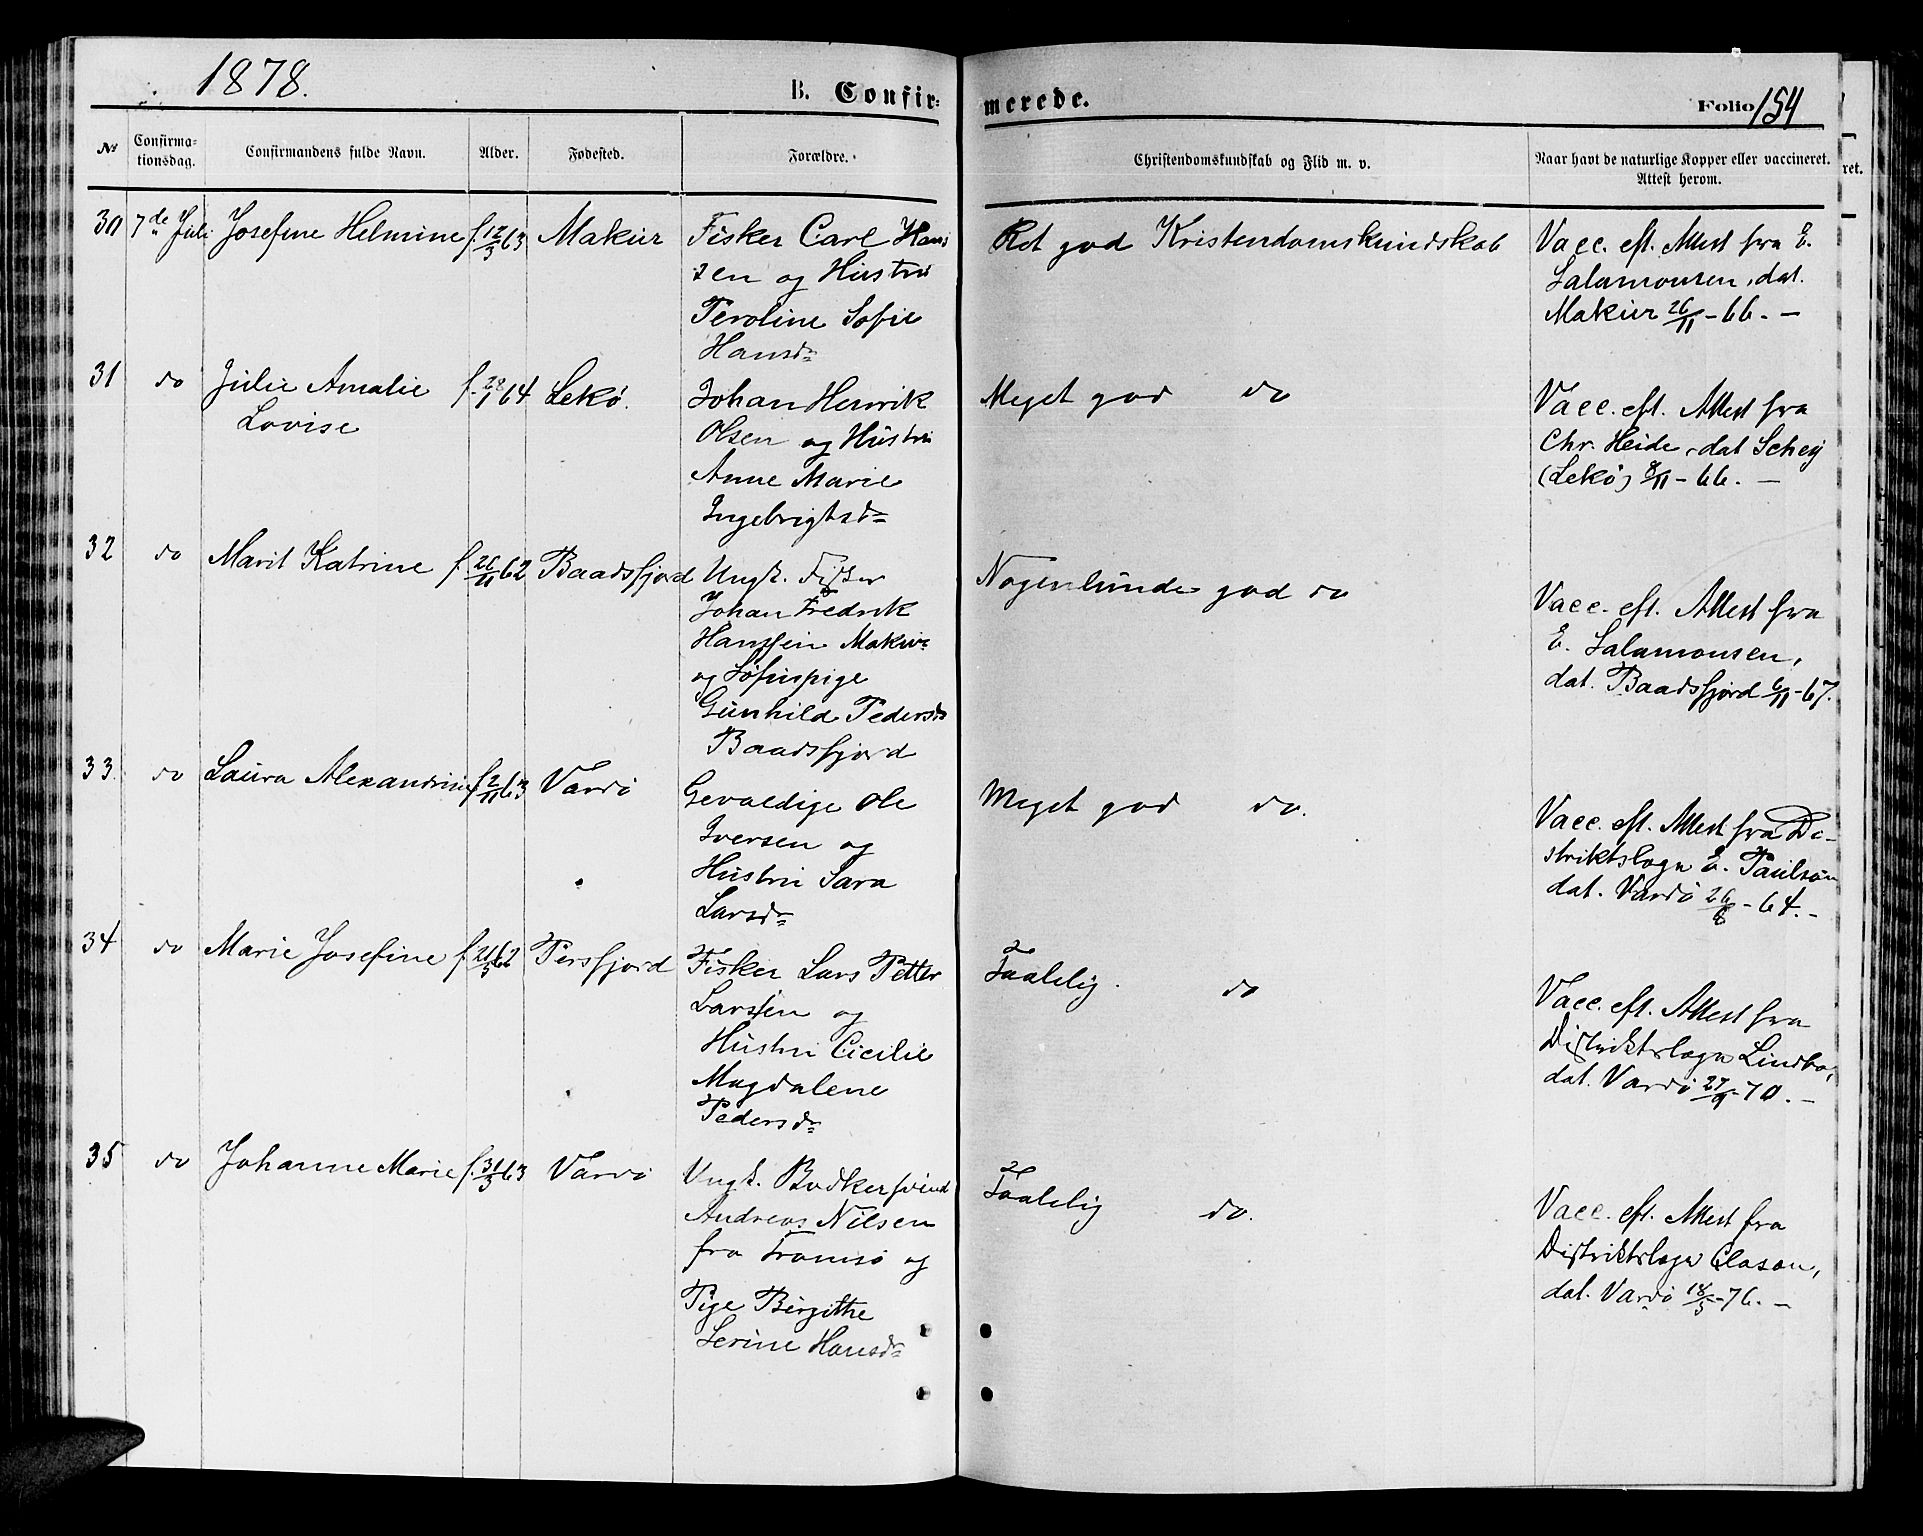 1878.
B. Confir-
merede.
Folio 154
No
Confirma-
tionsdag.
Confirmandens fulde Navn.
Alder.
Fødested.
Forældre.
Christendomskundskab og Flid m. v.
Naar havt de naturlige Kopper eller vaccineret.
Attest herom.
ret.
30 7de Juli Josefine Helmine f. 12/3 63 Makur Fisker Carl Han-
sen og Hustru
Peroline Sofie
Hansdr
Ret god Kristendomskundskab
Vacc. eft. Attest fra E.
Salamonsen, dat.
Makur 26/11-66. -
31 do Julie Amalie f. 28/1 64 Lekø. Johan Henrik
Lovise
Olsen og Hustru
Anne Marie
Ingebrigtsdr
Meget god do
Vacc. eft. Attest fra
Chr. Heide, dat Schey
(Lekø) 8/11-66. -
32 do Marit Katrine f. 26/11 62 Baadsfjord Ungk. Fisker
Johan Fredrik
Hanssen Makur
og Løsere pige
Gunhild Pedersdr
Baadsfjord
Nogenlunde god do
Vacc. eft. Attest fra
E. Salamonsen,
dat. Baadsfjord 6/11-67.
33 do Laura Alexandrine f. 2/11 63 Vardø Gevaldige Ole
Iversen og
Hustru Sara
Larsdr
Meget god do.
Vacc. eft. Attest fra Di-
striktslæge E. Paulson
dat. Vardø 26/8-64. -
34 do Marie Josefine f. 21/3 62 Persfjord Fisker Lars Petter
Larssen og
Hustru Cicilie
Magdalene
Pedersdr
Taalelig. do
Vacc. eft. Attest fra
Distriktslæge Lindbo,
dat. Vardø 27/9-70. -
35 do Johanne Marie f. 31/3 63 Vardø Ungk. Bødkersvend
Andreas Nilsen
fra Tromsø og
Pige Birgithe
Serine Hansdr
Taalelig do.
Vacc. eft. Attest fra
Distriktslæge Clason,
dat. Vardø 18/5-76. -